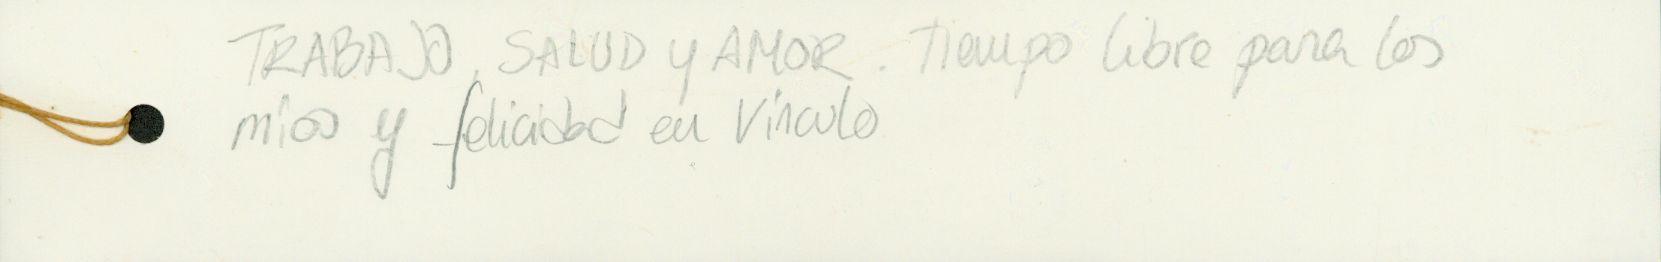 TRABAJO, SALUD y AMOR. Tiempo libre para los
mios y felicidad en Vínculo